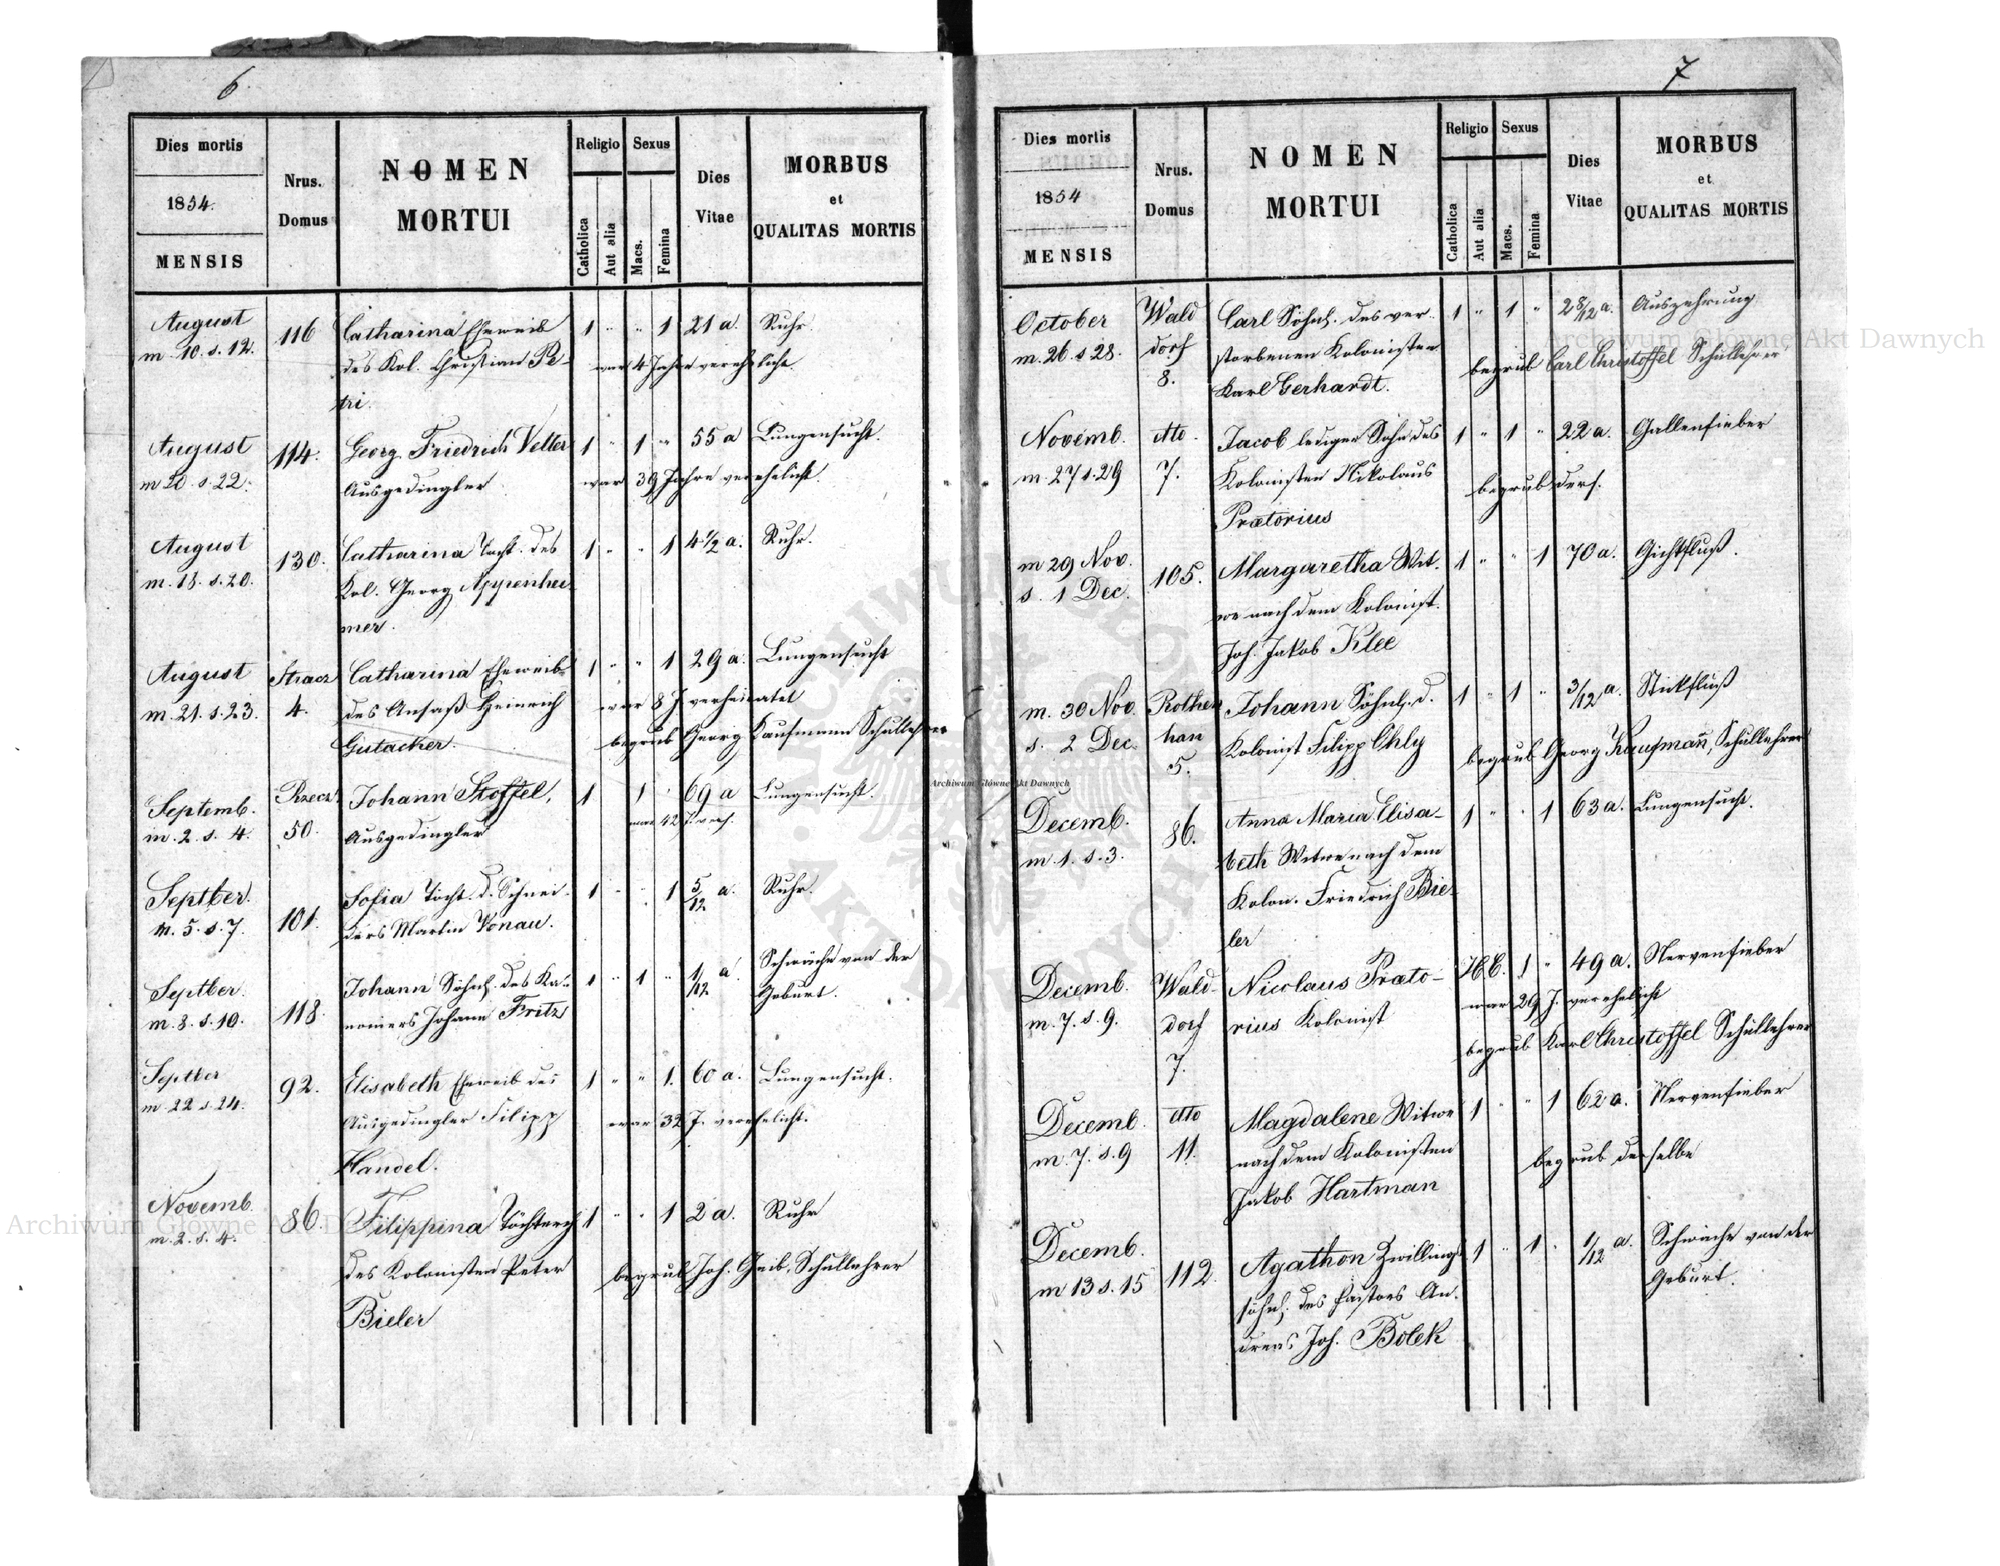 6
Dies mortis
1854.
MENSIS
Nrus.
Domus
NOMEN
MORTUI
Religio
Catholica
Aut alia
Sexus
Macs.
Femina
Dies
Vitae
MORBUS
et
QUALITAS MORTIS
August
m. 10. s. 12.
116
Catharina Eheweib
des Kol. Christian Pe-
tri.
1 " " 1 21 a. Ruhr
war 4 Jahre verehelicht.
August
m 20. s. 22.
114.
Georg Friedrich Velter
Ausgedingler
1 " 1 " 55 a Lungensucht.
war 39 Jahre verehelicht.
August
m. 18. s. 20.
130.
Catharina Tocht. des
Kol. Georg Appenhei-
mer.
1 " " 1 4 1/2 a. Ruhr.
August
m. 21. s. 23.
4.
Catharina Eheweib
des Ansaß Heinrich
Gutacker.
1 " " 1 29 a. Lungensucht
war 8 J. verheiratet
begrub Georg Kaufmann Schullehrer
Septemb.
m. 2. s. 4.
50.
Johann Stoffel,
Ausgedingler
1 1 " 69 a Lungensucht.
war 42 J. vereh.
Septber.
m. 5. s. 7.
101.
Sofia Tocht. d. Schnei-
ders Martin Vonau.
1 " " 1 5/12 a. Ruhr.
Septber.
m. 8. s. 10.
118.
Johann Söhnl. des Ka-
noniers Johann Fritz
1 " 1 " 1/12 a. Schwäche von der
Geburt.
Septber
m. 22 s. 24.
92.
Elisabeth Eheweib des
Ausgedingler Filipp
Handel.
1 " " 1. 60 a. Lungensucht.
war 32 J. verehelicht.
Novemb.
m. 2. s. 4.
86.
Filippina Töchterch
des Kolonisten Peter
Bieler
1 " " 1 2 a. Ruhr
begrub Joh. Geib, Schullehrer
7
Dies mortis
1854
MENSIS
Nrus.
Domus
NOMEN
MORTUI
Religio
Catholica
Aut alia
Sexus
Macs.
Femina
Dies
Vitae
MORBUS
et
QUALITAS MORTIS
October
m. 26. s 28.
Wald
dorf
8.
Carl Söhnl. des ver-
storbenen Kolonisten
Karl Gerhardt.
1 " 1 " 2 8/12 a. Auszehrung
begrub Carl Christoffel Schullehrer
Novemb.
m. 27 s. 29
dto.
7.
Jacob lediger Sohn des
Kolonisten Nikolaus
Prætorius
1 " 1 " 22 a. Gallenfieber
begrub ders.
m 29 Nov.
s. 1 Dec.
105.
Margaretha Wit-
we nach dem Kolonist.
Joh. Jakob Klee
1 " " 1 70 a. Gichtfluß.
m. 30 Nov.
s. 2 Dec.
Rothen
han
5.
Johann Söhnl. d.
Kolonist Filipp Ohly
1 " 1 " 3/12 a. Stickfluß
begrub Georg Kaufmañ, Schullehrer
Decemb.
m. 1. s. 3.
86.
Anna Maria Elisa-
beth Witwe nach dem
Kolon. Friedrich Bie-
ler
1 " " 1 63 a. Lungensucht.
Decemb.
m. 7. s. 9.
Wald-
dorf
7.
Nicolaus Prato-
rius Kolonist
H.C. 1 " 49 a. Nervenfieber
war 29 J. verehelicht
begrub Karl Christoffel Schullehrer
Decemb.
m. 7. s. 9
dto
11.
Magdalene Witwe
nach dem Kolonisten
Jakob Hartman
1 " " 1 62 a. Nervenfieber
begrub derselbe
Decemb.
m 13 s. 15
112.
Agathon Zwillings
söhnl. des Pastors An-
dreas Joh. Bolek
1 " 1 " 1/12 a. Schwäche von der
Geburt.
Archiwum Główne Akt Dawnych
Archiwum Główne Akt Dawnych
Archiwum Główne Akt Dawnych